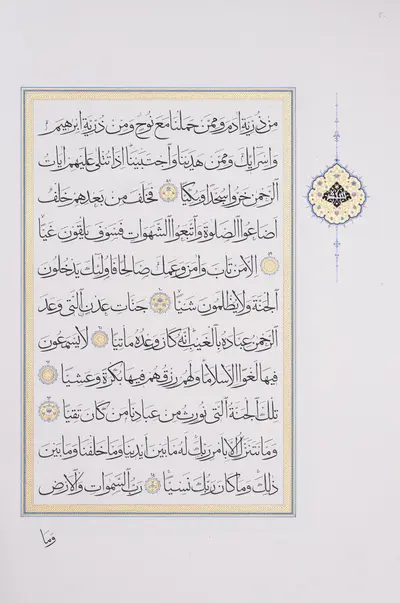 مِنْ ذُرِّيَّةِ اٰدَمَ وَمِمَّنْ حَمَلْنَا مَعَ نُوحٍ وَمِنْ ذُرِّيَّةِ اِبْرٰهِيمَ
وَاِسْرَائِلَ وَمِمَّنْ هَدَيْنَا وَاجْتَبَيْنَا اِذَا تُتْلٰى عَلَيْهِمْ اٰيَاتُ
الرَّحْمٰنِ خَرُّوا سُجَّدًا وَبُكِيًّا فَخَلَفَ مِنْ بَعْدِهِمْ خَلْفٌ
اَضَاعُوا الصَّلٰوةَ وَاتَّبَعُوا الشَّهَوَاتِ فَسَوْفَ يَلْقَوْنَ غَيًّا
اِلَّا مَنْ تَابَ وَاٰمَنَ وَعَمِلَ صَالِحًا فَاُولٰئِكَ يَدْخُلُونَ
الْجَنَّةَ وَلَا يُظْلَمُونَ شَيْئًا جَنَّاتِ عَدْنٍ الَّتِي وَعَدَ
الرَّحْمٰنُ عِبَادَهُ بِالْغَيْبِ اِنَّهُ كَانَ وَعْدُهُ مَأْتِيًّا لَا يَسْمَعُونَ
فِيهَا لَغْوًا اِلَّا سَلَامًا وَلَهُمْ رِزْقُهُمْ فِيهَا بُكْرَةً وَعَشِيًّا
تِلْكَ الْجَنَّةُ الَّتِي نُورِثُ مِنْ عِبَادِنَا مَنْ كَانَ تَقِيًّا
وَمَا نَتَنَزَّلُ اِلَّا بِاَمْرِ رَبِّكَ لَهُ مَا بَيْنَ اَيْدِينَا وَمَا خَلْفَنَا وَمَا بَيْنَ
ذٰلِكَ وَمَا كَانَ رَبُّكَ نَسِيًّا رَبُّ السَّمٰوَاتِ وَالْاَرْضِ
وَمَا